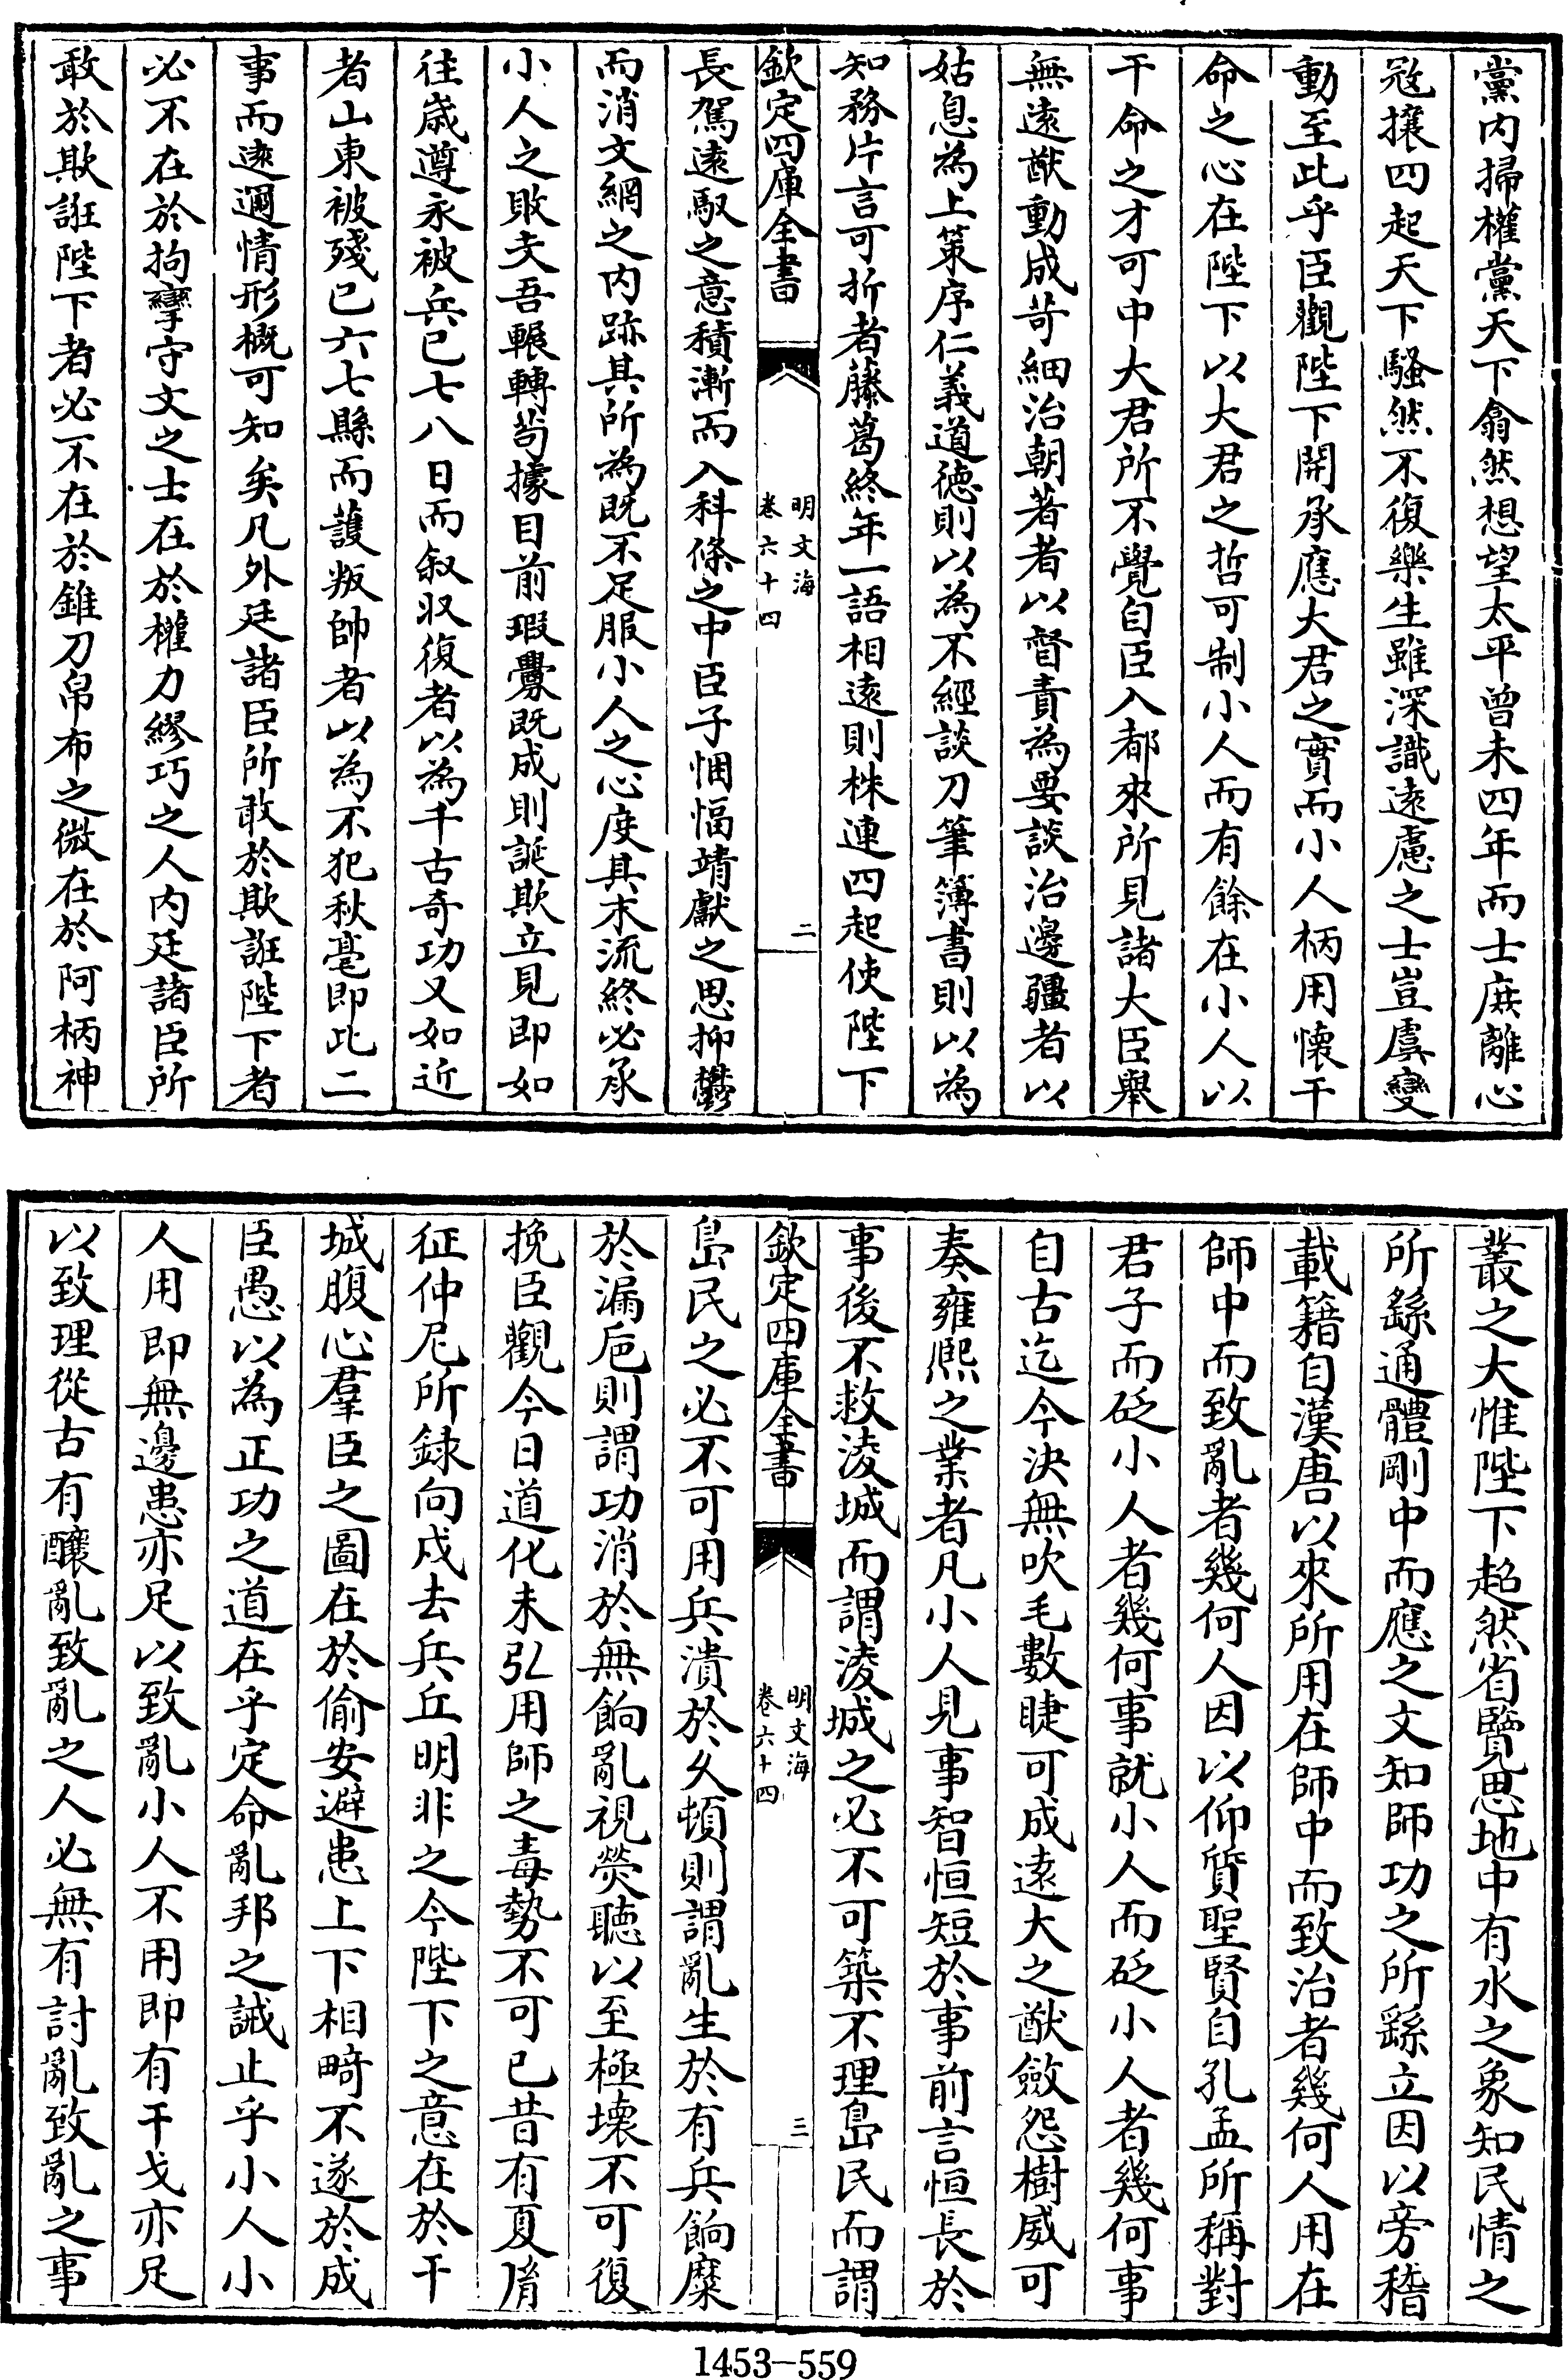 黨内掃權黨天下翕然想望太平曾未四年而士庶離心
宼攘四起天下騷然不復樂生雖深識遠慮之士豈虞變
動至此乎臣觀陛下開承應大君之實而小人柄用懐干
命之心在陛下以大君之哲可制小人而有餘在小人以
干命之才可中大君所不覺自臣入都來所見諸大臣舉
無遠猷動成苛細治朝著者以督責為要談治邊疆者以
姑息為上策序仁義道徳則以為不經談刀筆簿書則以為
知務片言可折者藤葛終年一語相遠則株連四起使陛下
欽定四庫全書
明文海
卷六十四
二
長駕遠馭之意積漸而入科條之中臣子悃愊靖獻之思抑鬱
而消文網之内跡其所為既不足服小人之心度其末流終必承
小人之敗夫吾輾轉茍據目前瑕釁既成則誕欺立見即如
往嵗遵永被兵已七八日而叙収復者以為千古奇功又如近
者山東被殘已六七縣而䕶叛帥者以為不犯秋毫即此二
事而遠邇情形概可知矣凡外廷諸臣所敢於欺誑陛下者
必不在於拘攣守文之士在於權力繆巧之人内廷諸臣所
敢於欺誑陛下者必不在於錐刀帛布之微在於阿柄神
叢之大惟陛下超然省覽思地中有水之象知民情之
所繇通體剛中而應之文知師功之所繇立因以旁稽
載籍自漢唐以來所用在師中而致治者幾何人用在
師中而致亂者幾何人因以仰質聖賢自孔孟所稱對
君子而砭小人者幾何事就小人而砭小人者幾何事
自古迄今決無吹毛數睫可成遠大之猷斂怨樹威可
奏雍熙之業者凡小人見事智恒短於事前言恒長於
事後不救淩城而謂淩城之必不可築不理島民而謂
欽定四庫全書
明文海
卷六十四
三
島民之必不可用兵潰於久頓則謂亂生於有兵餉糜
於漏巵則謂功消於無餉亂視熒聽以至極壊不可復
挽臣觀今日道化未弘用師之毒勢不可已昔有夏脩
征仲尼所録向戍去兵丘明非之今陛下之意在於干
城腹心羣臣之圖在於偷安避患上下相畸不遂於成
臣愚以為正功之道在乎定命亂邦之誡止乎小人小
人用即無邊患亦足以致亂小人不用即有干戈亦足
以致理從古有釀亂致亂之人必無有討亂致亂之事
1453-559